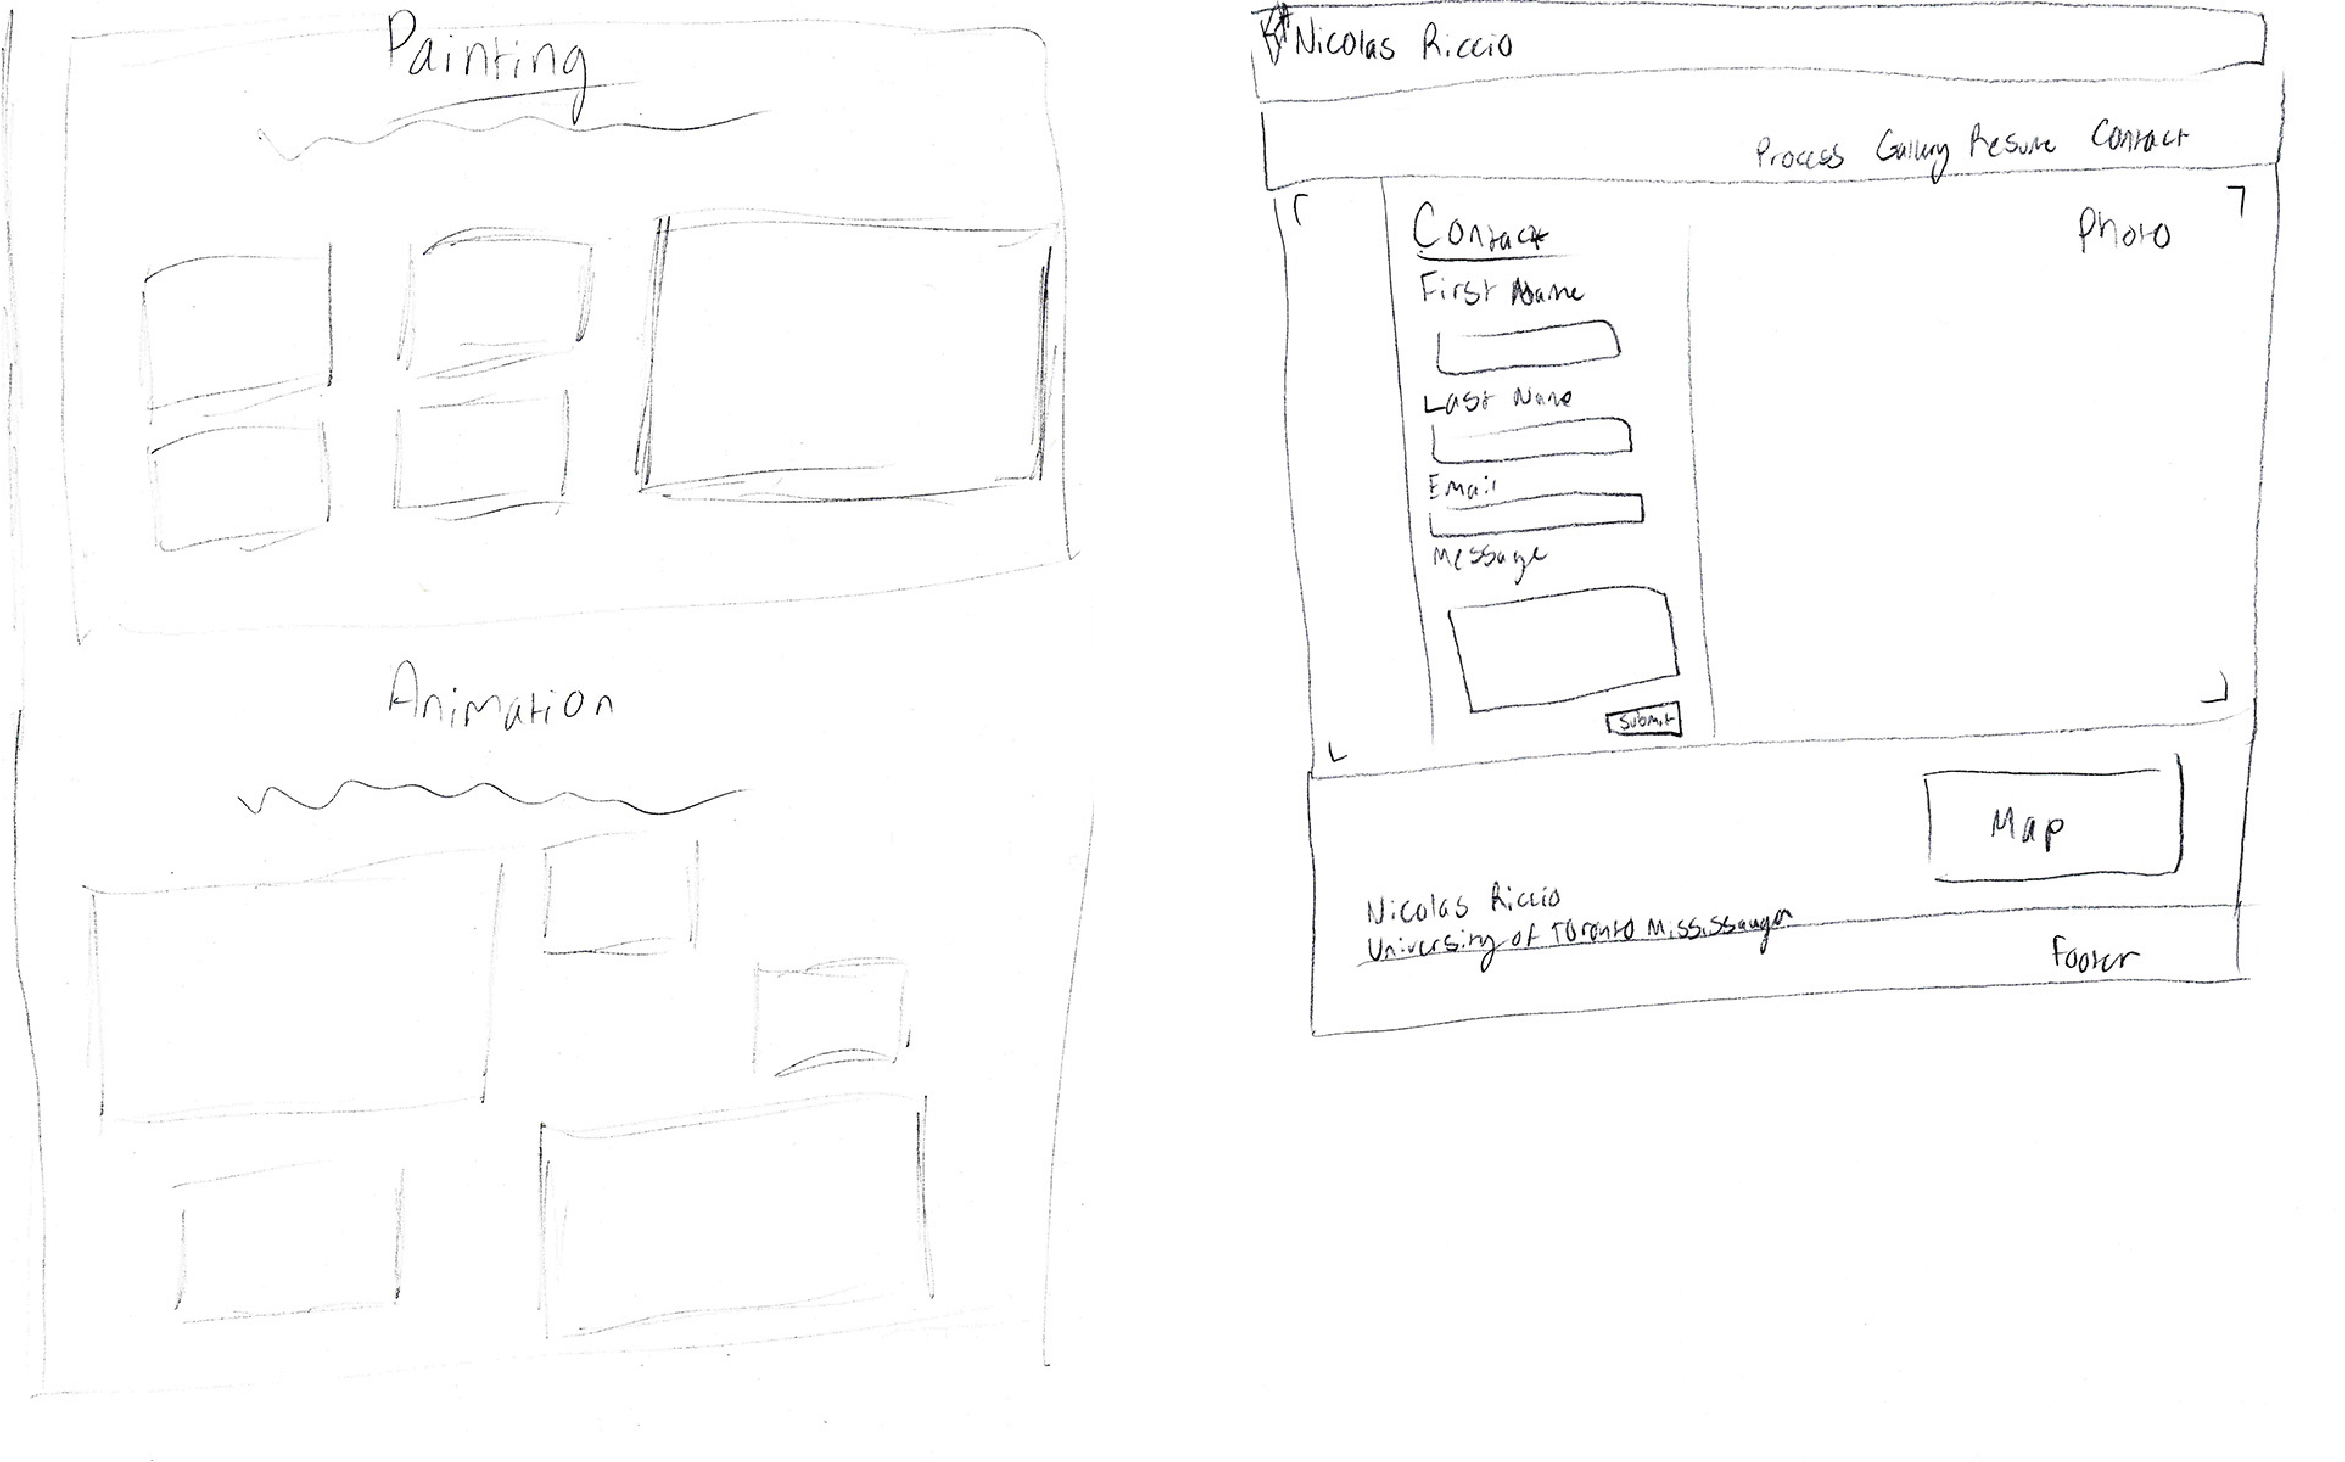 Painting
Animation
Nicolas Riccio
Process Gallery Resume Contact
Contact
Photo
First Name
Last Name
Email
Message
Submit
Map
Nicolas Riccio
University of Toronto Mississauga
Footer